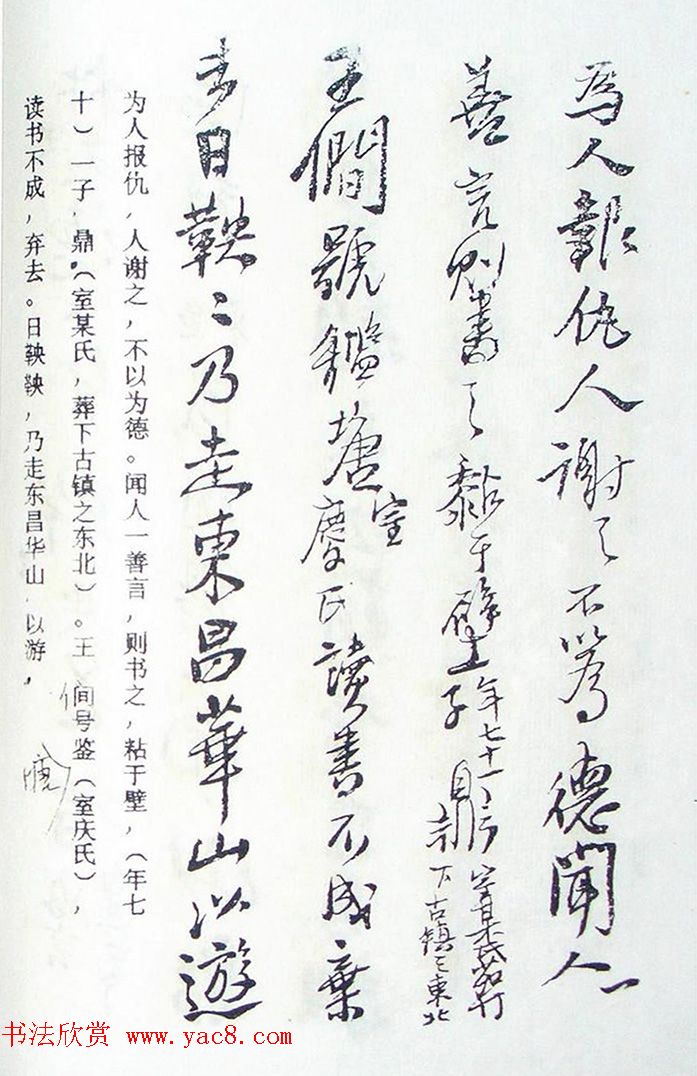 為人報仇人謝之不以為德聞人一
善言則書之黏于壁年七十一子鼎室某氏葬下古镇之東北
王僩號鑑塘室慶氏讀書不成棄
去日鞅〻乃走東昌華山以遊
为人报仇，人谢之，不以为德。闻人一善言，则书之，粘于壁，（年七
十）一子，鼎。（室某氏，葬下古镇之东北）。王 僩号鉴（室庆氏），
读书不成，弃去。日鞅鞅，乃走东昌华山，以游，
书法欣赏 www.yac8.com